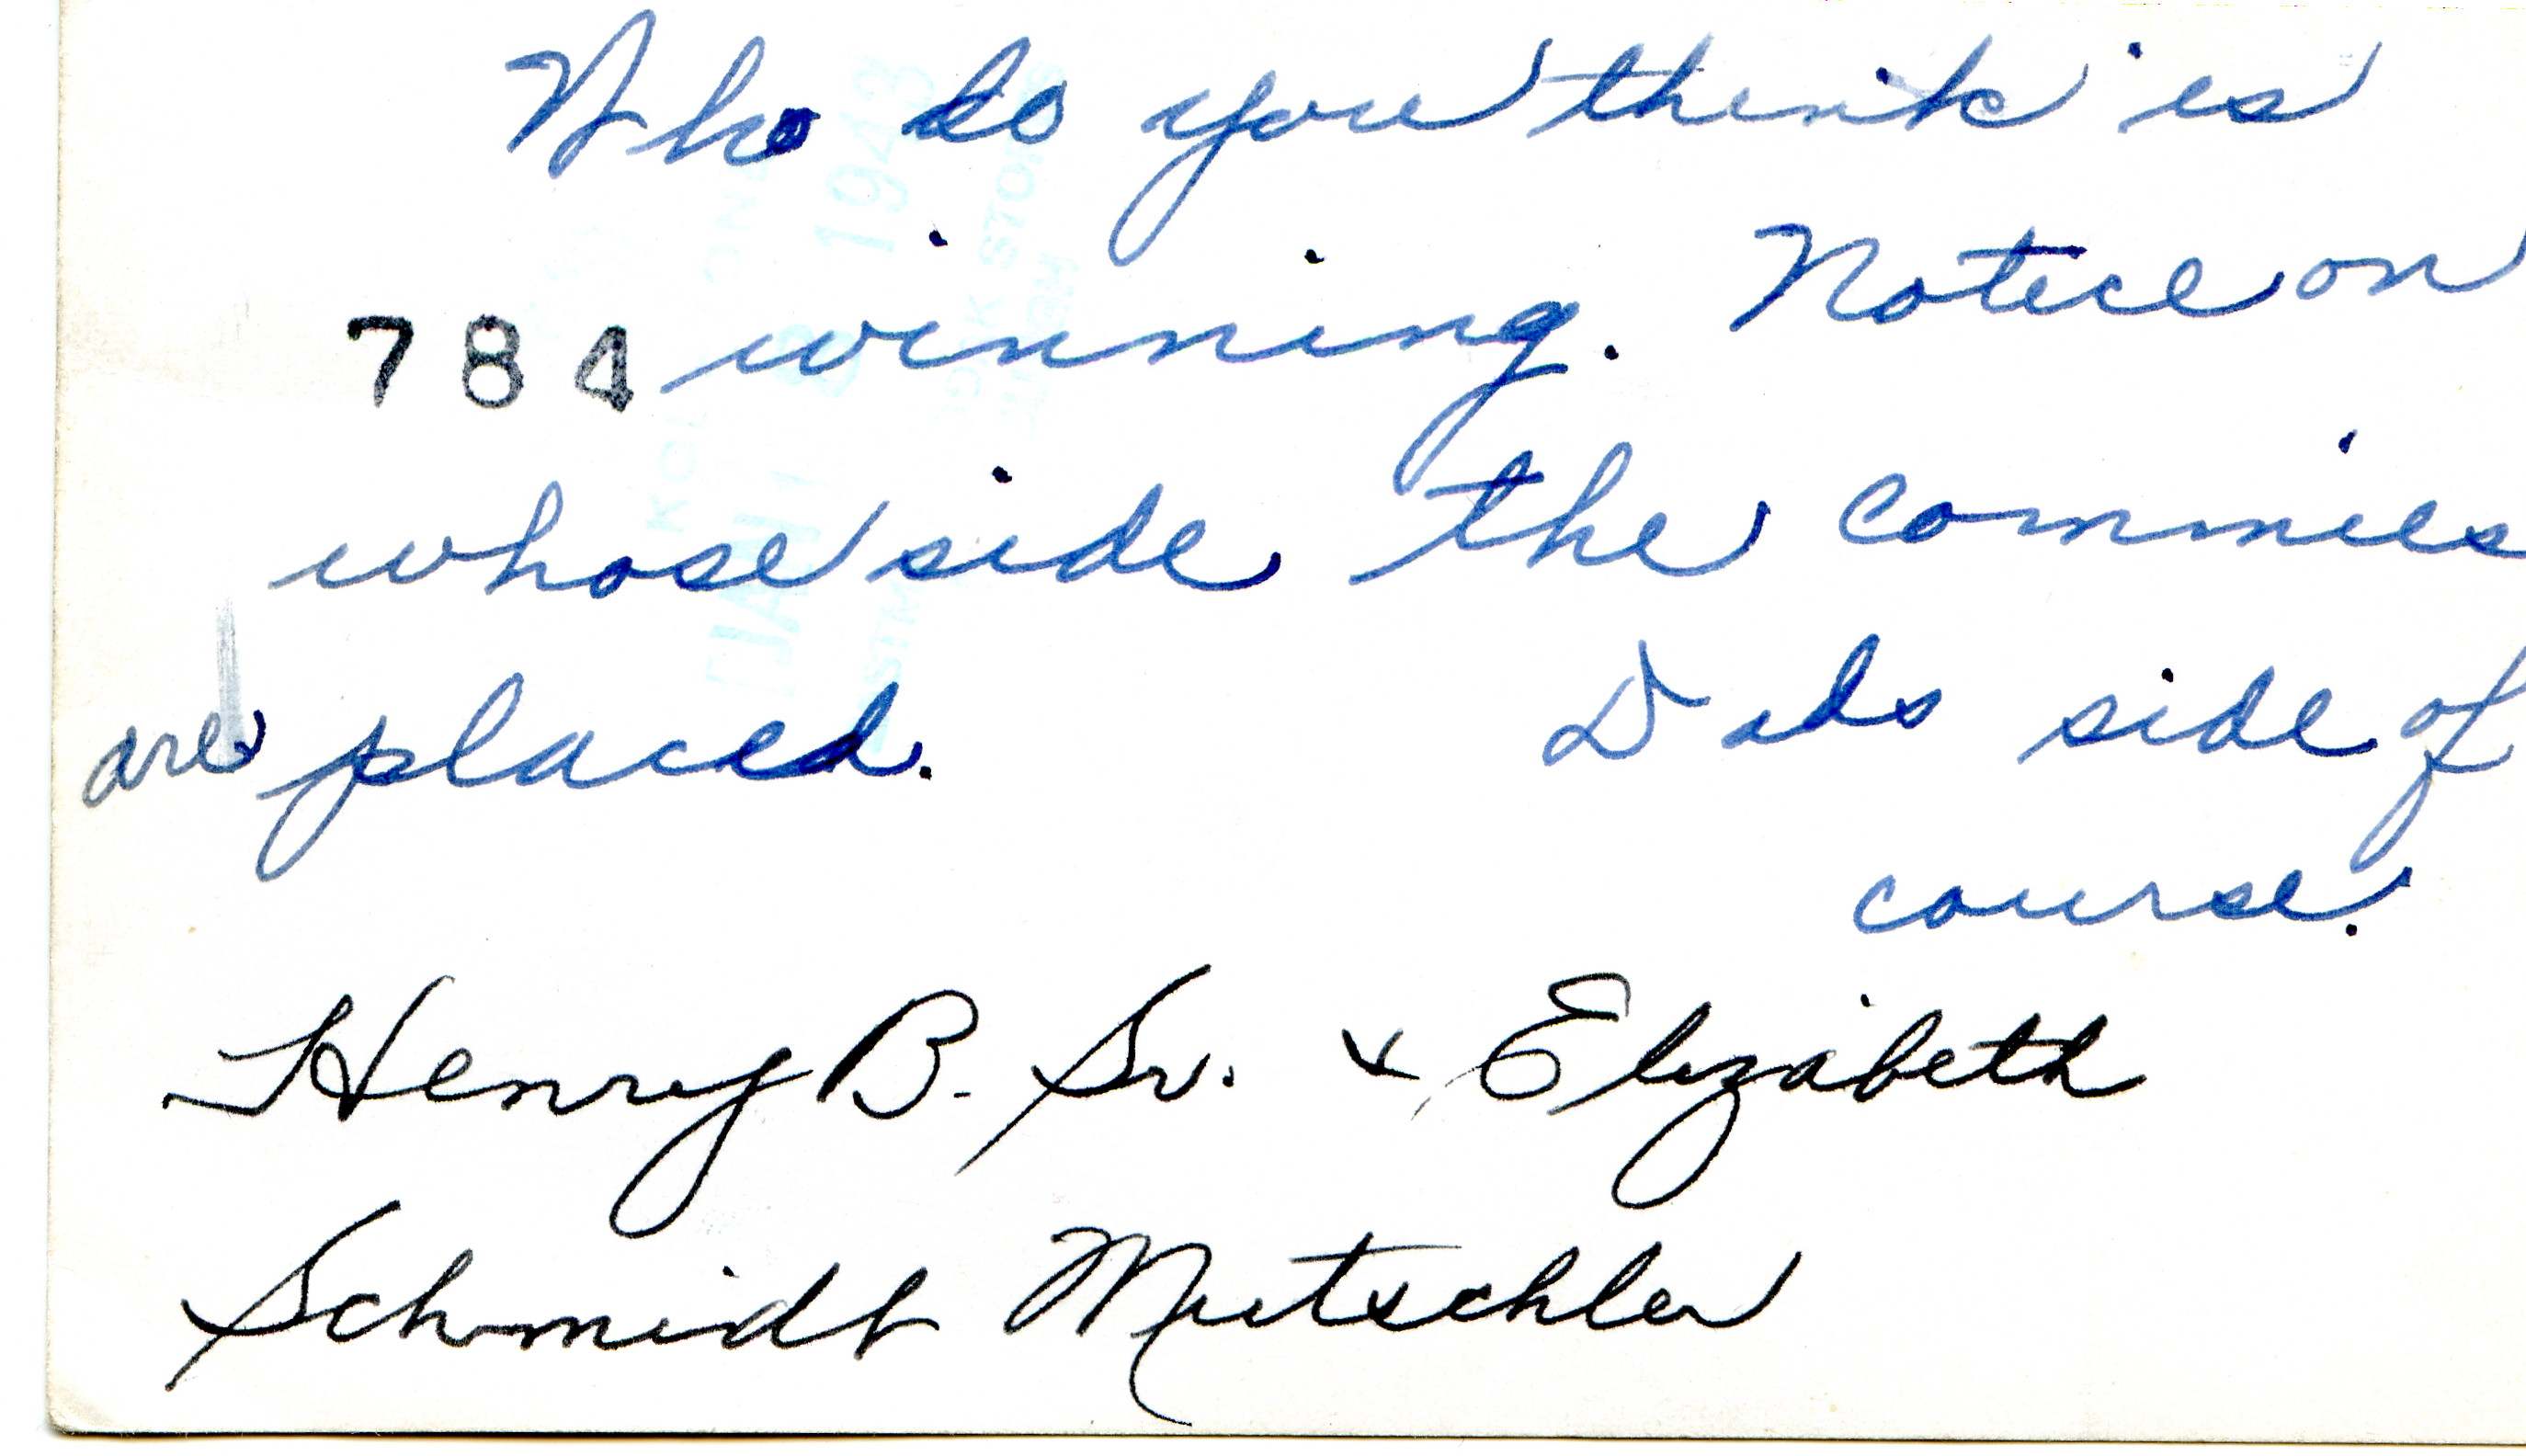 Who do you think is
784 winning. Notice on
whose side the commies
are placed. Dads side of
course.
Henry B. Sr. & Elizabeth
Schmidt Mutschler
1943